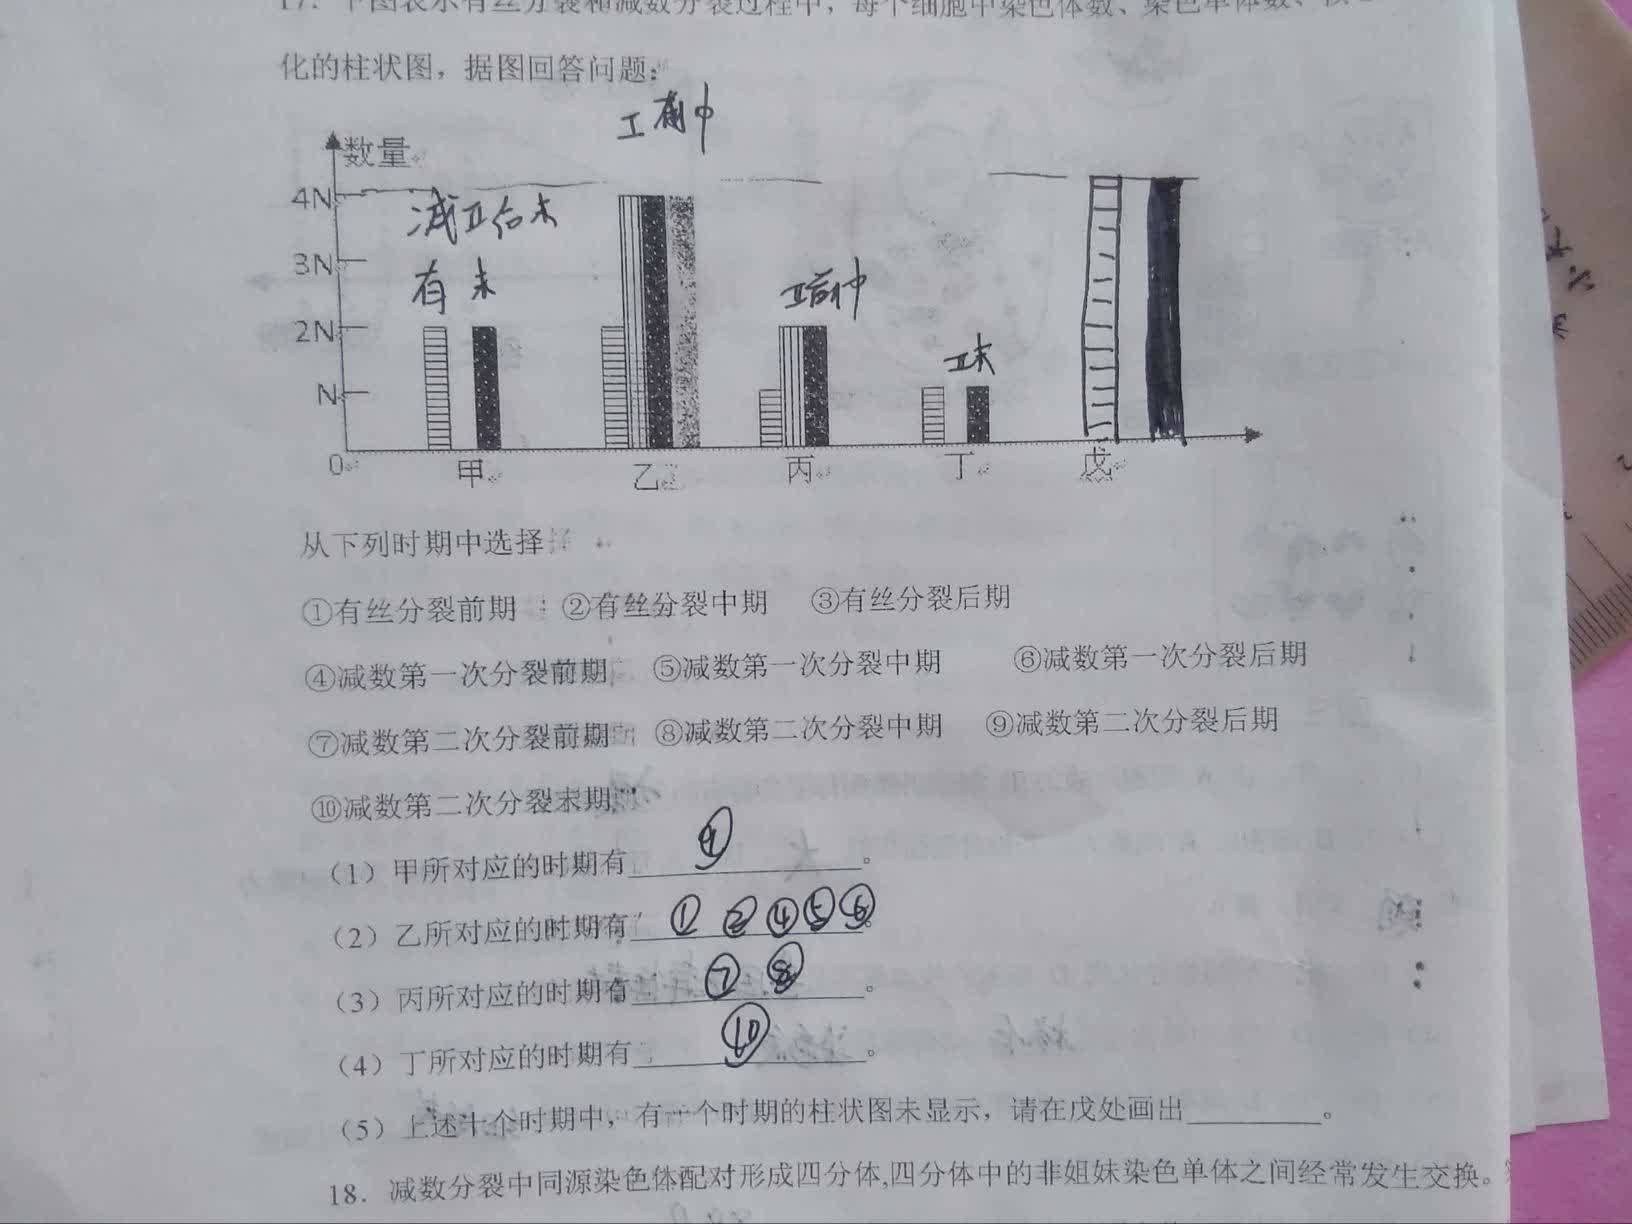 17. 下图表示有丝分裂和减数分裂过程中，每个细胞中染色体数、染色单体数、
化的柱状图，据图回答问题：
I前中
数量
4N
减II后末
3N
有末
II前中
2N
II末
N
0
甲 乙 丙 丁 戊
从下列时期中选择
①有丝分裂前期 ②有丝分裂中期 ③有丝分裂后期
④减数第一次分裂前期 ⑤减数第一次分裂中期 ⑥减数第一次分裂后期
⑦减数第二次分裂前期 ⑧减数第二次分裂中期 ⑨减数第二次分裂后期
⑩减数第二次分裂末期
（1）甲所对应的时期有 。
（2）乙所对应的时期有 ① ② ④ ⑤ 。
（3）丙所对应的时期有 ⑦ ⑧ 。
（4）丁所对应的时期有 ⑩ 。
（5）上述十个时期中，有一个时期的柱状图未显示，请在戊处画出 。
18. 减数分裂中同源染色体配对形成四分体,四分体中的非姐妹染色单体之间经常发生交换。